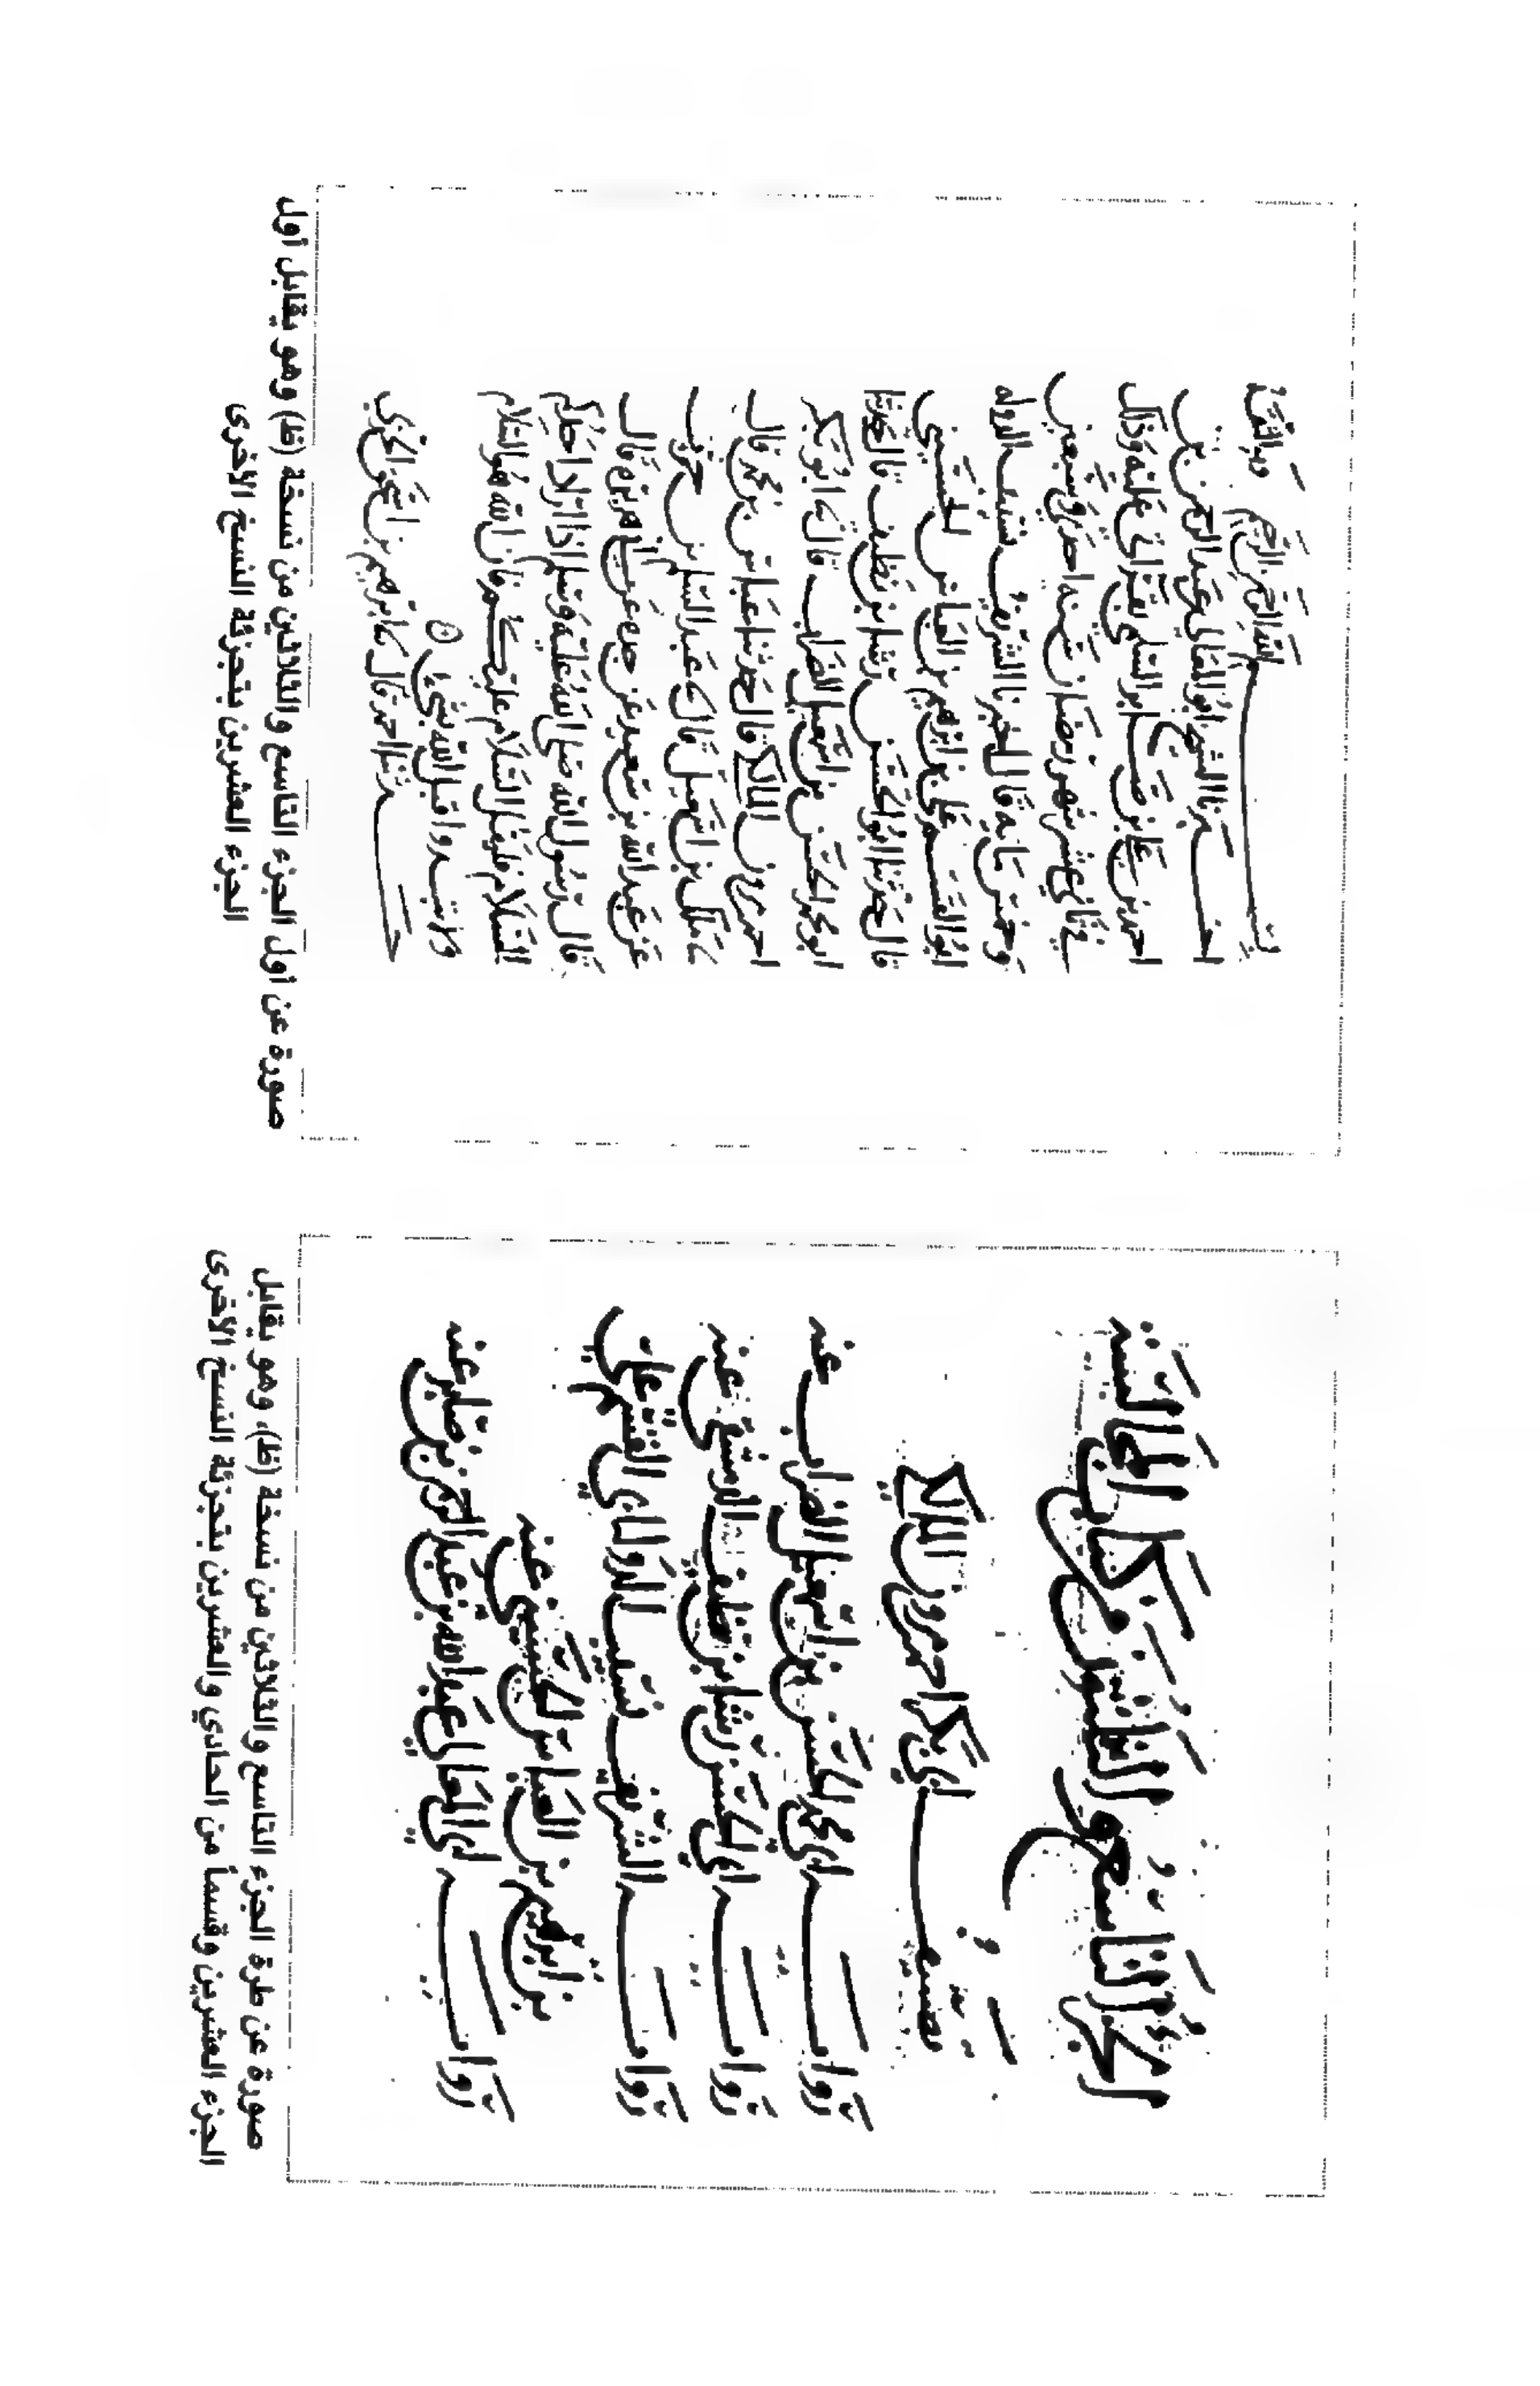 الجزء التاسع والثلثون من كتاب المجالسة
تصنيف
ابي بكر احمد بن مروان المالكي
رواية ابي محمد الحسن بن اسمعيل الضراب عنه
رواية ابي الحسن رشا بن نظيف الدمشقي عنه
رواية الشريف نسيب الدولة ابي القسم علي
بن ابرهيم بن العباس الحسيني عنه
رواية ابي المعالي عبد الله بن عبد الرحمن بن صابر عنه
صورة عن طرة الجزء التاسع والثلاثين من نسخة (ظ)، وهو يقابل
الجزء العشرين وقسماً من الحادي والعشرين بتجزئة النسخ الأخرى
بسم الله الرحمن الرحيم وبه الثقة
اخبرنا الشيخ ابو المعالي عبد الرحمن بن
احمد بن علي بن صابر السلمي بقراتي عليه وذلك
في ثاني عشر شهر رمضان سنة احدى وسبعين
وخمس مائة قال اخبرنا الشريف نسيب الدولة
ابو القسم علي بن ابرهيم بن العباس الحسيني
قال حدثنا ابو الحسن رشا بن نظيف قال حدثنا
ابو محمد الحسن بن اسمعيل الضراب قال نا ابو بكر
احمد بن مروان المالكي قال حدثنا عباس بن محمد قال
نا مالك بن اسمعيل قال نا عبد السلام بن حرب
عن عبد الله بن سعيد عن جده عن ابي هريرة قال
قال رسول الله صلى الله عليه وسلم اذا اراد احدكم
السلام فليقل السلام عليكم فان الله هو السلام
ولا تبدوا قبل الله بشيء
حدثنا احمد قال نا ابرهيم بن اسحق الحربي
صورة عن أول الجزء التاسع والثلاثين من نسخة (ظ) وهو يقابل أول
الجزء العشرين بتجزئة النسخ الأخرى